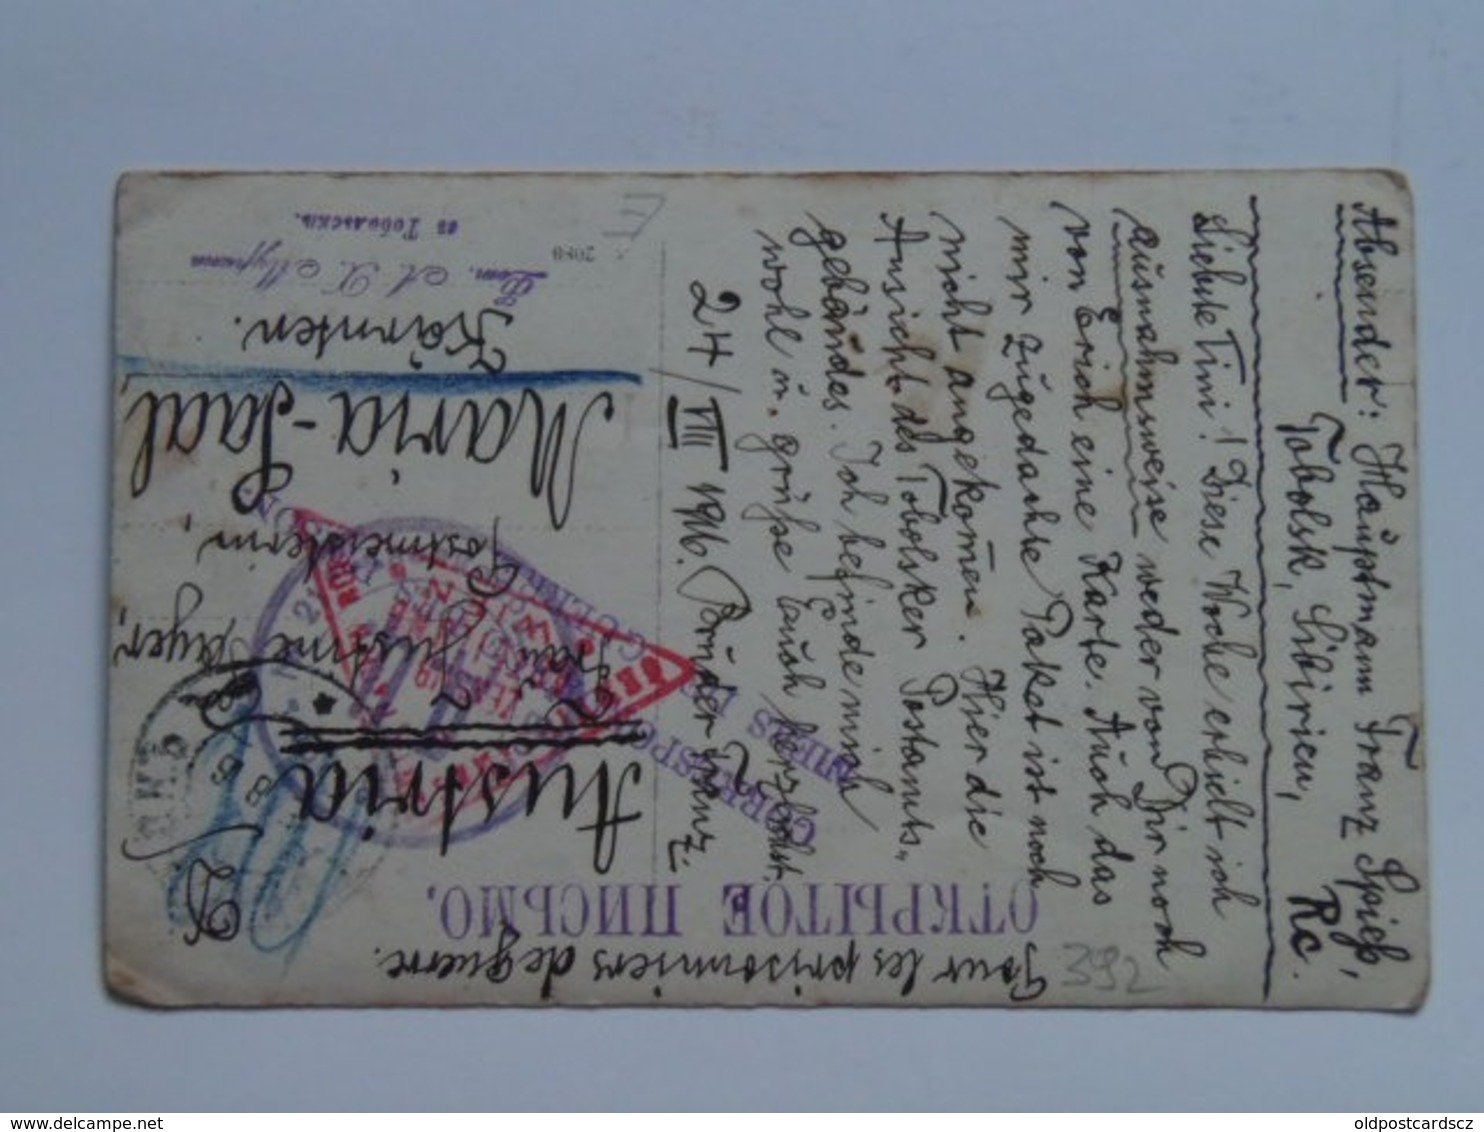 Pour les prisonniers de guerre.
ОТКРЫТОЕ ПИСЬМО.
392
Absender: Hauptmann Franz Spieß,
Tobolsk, Sibirien,
Rc.
Liebste Tini! Diese Woche erhielt ich
ausnahmsweise weder von Dir noch
von Erich eine Karte. Auch das
mir zugedachte Paket ist noch
nicht angekom̄en. Hier die
Ansicht des Tobolsker Postamts-
gebäudes. Ich befinde mich
wohl u. grüße Euch herzlichst.
24/VIII 1916. Bruder Franz.
Austria
Frau
Justine Mayer,
Postmeisterin,
Maria-Saal,
Kärnten.
CORRESPONDANCE
2080
въ Тобольскѣ.
E
oldpostcards.cz oldpostcardscz